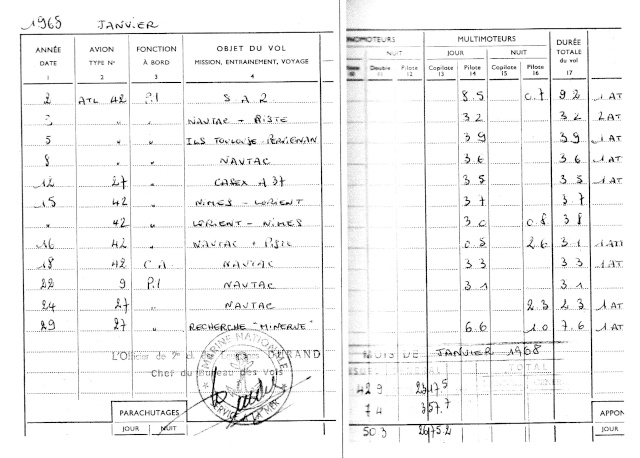 1968 JANVIER
ANNÉE AVION FONCTION OBJET DU VOL
DATE TYPE N° À BORD MISSION, ENTRAINEMENT, VOYAGE
1 2 3 4
2 ATL 42 P.1 S A R
" " NAUTAC + PISTE
5 " " ILS TOULOUSE PERPIGNAN
8 " " NAUTAC
12 27 " CAREX A 37
15 42 " NIMES - LORIENT
" 42 " LORIENT - NIMES
16 42 " NAUTAC +
18 42 C.A NAUTAC
22 9 P.1 NAUTAC
24 27 " NAUTAC
29 27 " RECHERCHE "MINERVE"
L'Officier de DURAND
Chef du Bureau des Vols
MARINE NATIONALE
PARACHUTAGES
JOUR NUIT
MULTIMOTEURS DURÉE
NUIT JOUR NUIT TOTALE
Double Pilote Copilote Pilote Copilote Pilote du vol
11 12 13 14 15 16 17
8.5 0.7 9.2 1 AT
3.2 3.2 2 AT
3.9 3.9 1 AT
3.6 3.6 1 AT
3.5 3.5 1 AT
3.7 3.7
3.0 0.8 3.8
0.5 2.6 3.1 1 AT
3.3 3.3 1 AT
3.1 3.1
2.3 2.3 1 AT
6.6 1.0 7.6 1 AT
MOIS DE JANVIER 1968
TOTAL
42.9
7.4 357.7
50.3
APPON
JOUR